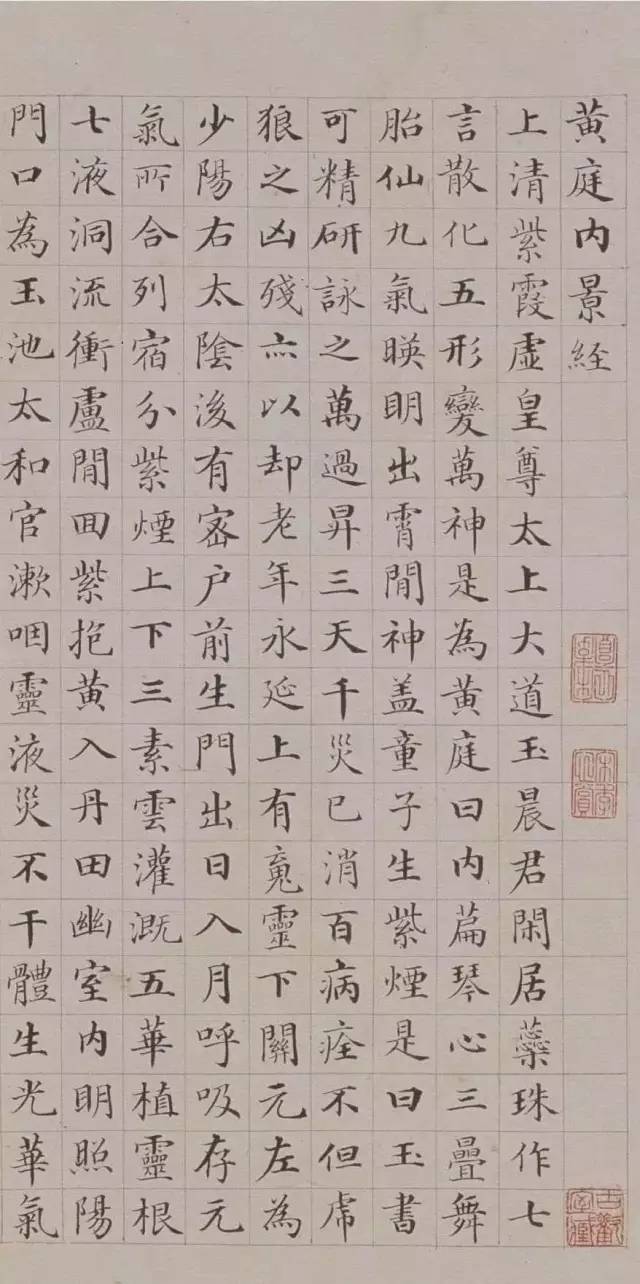 黃庭内景経
上清紫霞虛皇尊太上大道玉晨君閑居蘂珠作七
言散化五形變萬神是為黃庭曰内篇琴心三疊舞
胎仙九氣暎明出霄閒神盖童子生紫煙是曰玉書
可精研詠之萬過昇三天千災已消百病痊不但虎
狼之凶殘亦以却老年永延上有䰟靈下關元左為
少陽右太陰後有密户前生門出日入月呼吸存元
氣所合列宿分紫煙上下三素雲灌溉五華植靈根
七液洞流衝盧閒回紫抱黃入丹田幽室内明照陽
門口為玉池太和官漱咽靈液災不干體生光華氣